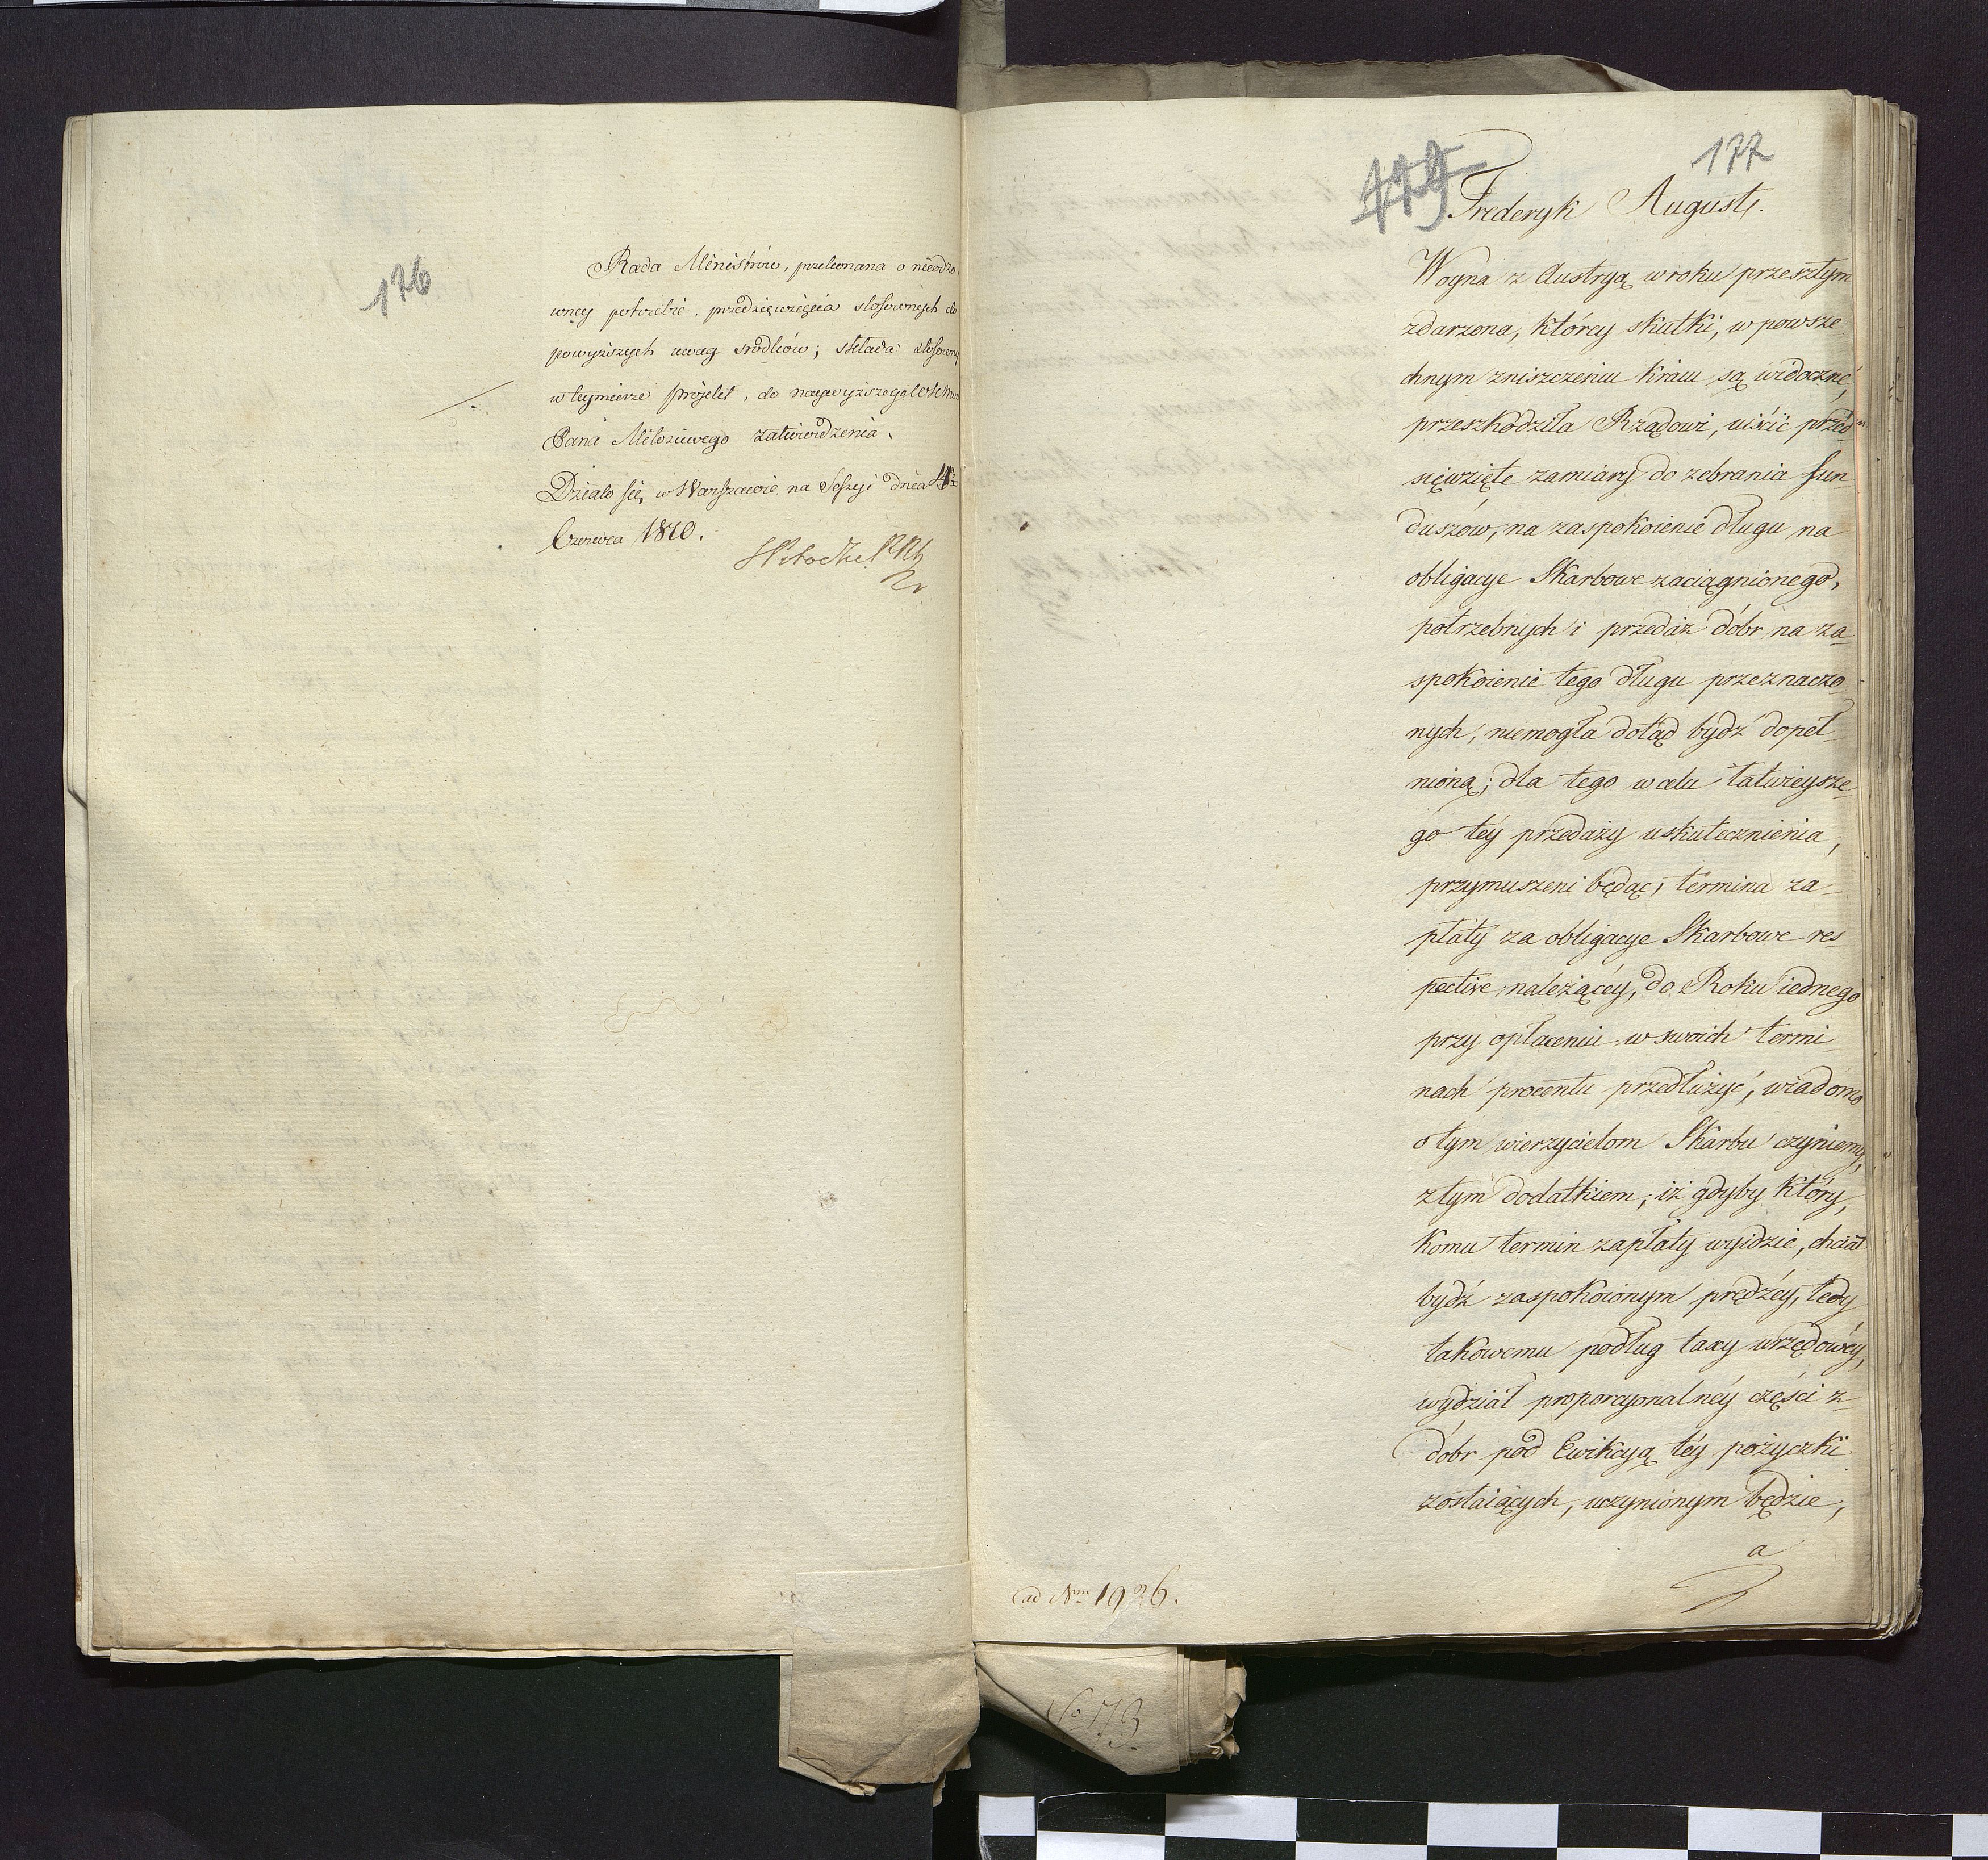 176
Rada Ministrów, przekonana o nieodzo
wney potrzebie, przedsięwzięcia stosownych do
powyższych uwag srodków; składa stosowny
w teymierze projekt, do naywyższego WKMci
Pana Miłościwego zatwierdzenia.
Działo się, w Warszawie na Sessyi dnia
Czerwca 1810.
177
Frederyk August.
Woyna z Austryą w roku przeszłym
zdarzona, którey skutki, w powsze-
chnym zniszczeniu kraiu są widoczne,
przeszkodziła Rządowi, uiścić przed-
sięwzięte zamiary do zebrania fun-
duszów, na zaspokoienie długu na
obligacye Skarbowe zaciągnionego,
potrzebnych i przedaż dóbr na za-
spokoienie tego długu przeznaczo
nych, niemogła dotąd bydź dopeł-
nioną; dla tego w celu łatwieysze-
go tey przedaży uskutecznienia,
przymuszeni będąc, termina za-
płaty za obligacye Skarbowe res-
pective należącey, do Roku iednego
przy opłaceniu w swoich termi-
nach procentu przedłużyć, wiadomo
o tym wierzycielom Skarbu czyniemy,
z tym dodatkiem, iż gdyby który,
komu termin zapłaty wyidzie, chciał
bydź zaspokoionym prędzéy, tedy
takowemu podług taxy urzędowéy,
wydział proporcyonalnéy części z
dóbr pod Ewikcyą téy pożyczki
zostaiących, uczynionym będzie,
a
ad Nrm 1926.